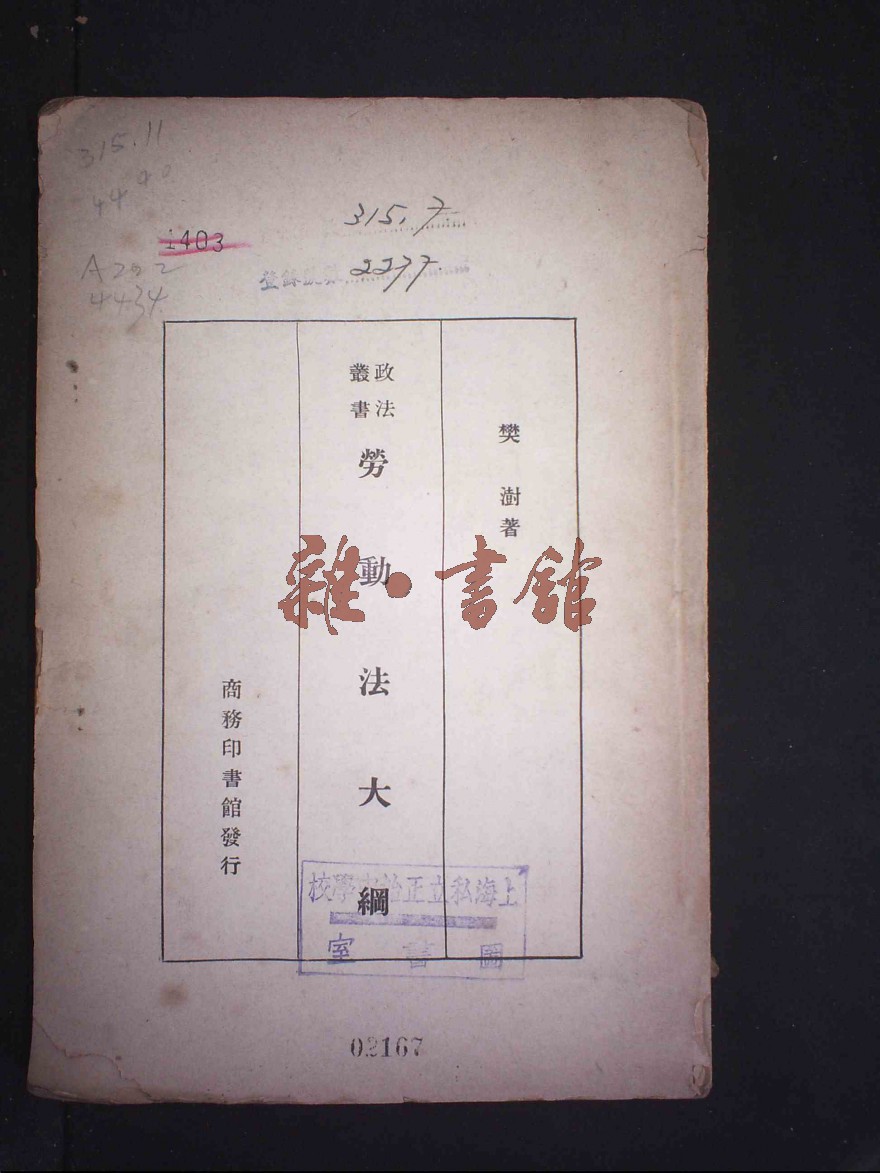 315.11
44
1403
A202
4434
315.7
登錄
2277
樊澍著
政法
叢書
勞動法大綱
商務印書館發行
雜·書館
上海私立正治中學校
圖書室
02167